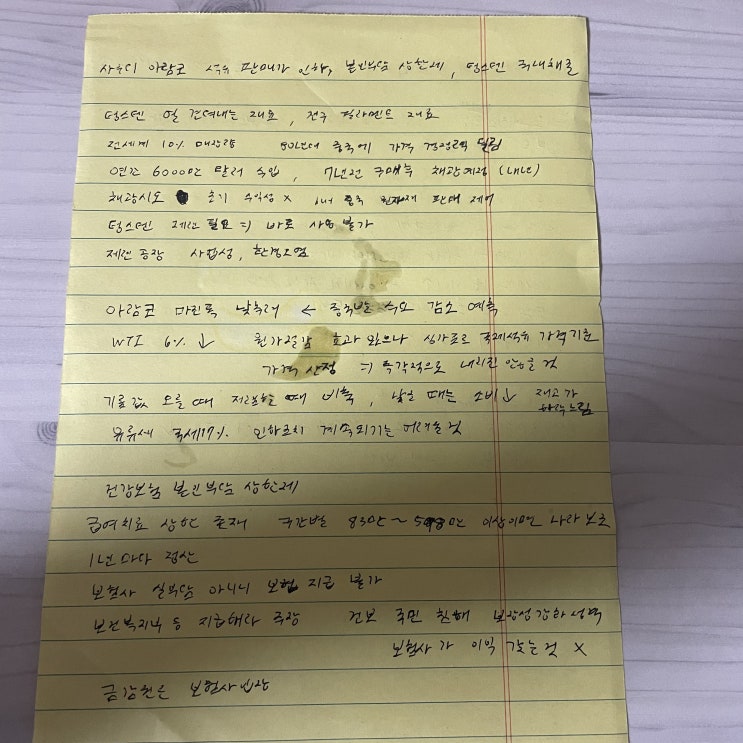 사우디 아람코 석유 판매가 인하, 본인부담 상한제, 텅스텐 국내채굴
텅스텐 열 견뎌내는 재료, 전구 필라멘트 재료
전세계 10% 매장량 80년대 중국에 가격 경쟁력 밀림
연간 6000만 달러 수입, 7년전 구매후 채광예정 (내년)
채광시도 초기 수익성 x 중국 원자재 판매 제어
텅스텐 제련 필요 ⇒ 바로 사용 불가
제련 공장 사업성, 환경오염
아람코 마진폭 낮추려 ← 중국발 수요 감소 예측
WTI 6% ↓ 원가절감 효과 있으나 싱가포르 국제석유 가격기준
가격 산정 ⇒ 즉각적으로 내리진 않을 것
기름값 오를 때 저렴할 때 비축, 낮을 때는 소비↓ 재고가
하락느림
유류세 국세17% 인하조치 계속되기는 어려울 것
건강보험 본인부담 상한제
급여치료 상한 존재 구간별 83만~598만 이상이면 나라 보조
1년마다 정산
보험사 실부담 아니니 보험 지급 불가
보건복지부 등 지급해라 주장 건보 국민 침해 보장성강화 성격
보험사가 이익 갖는것 x
금감원은 보험사입장